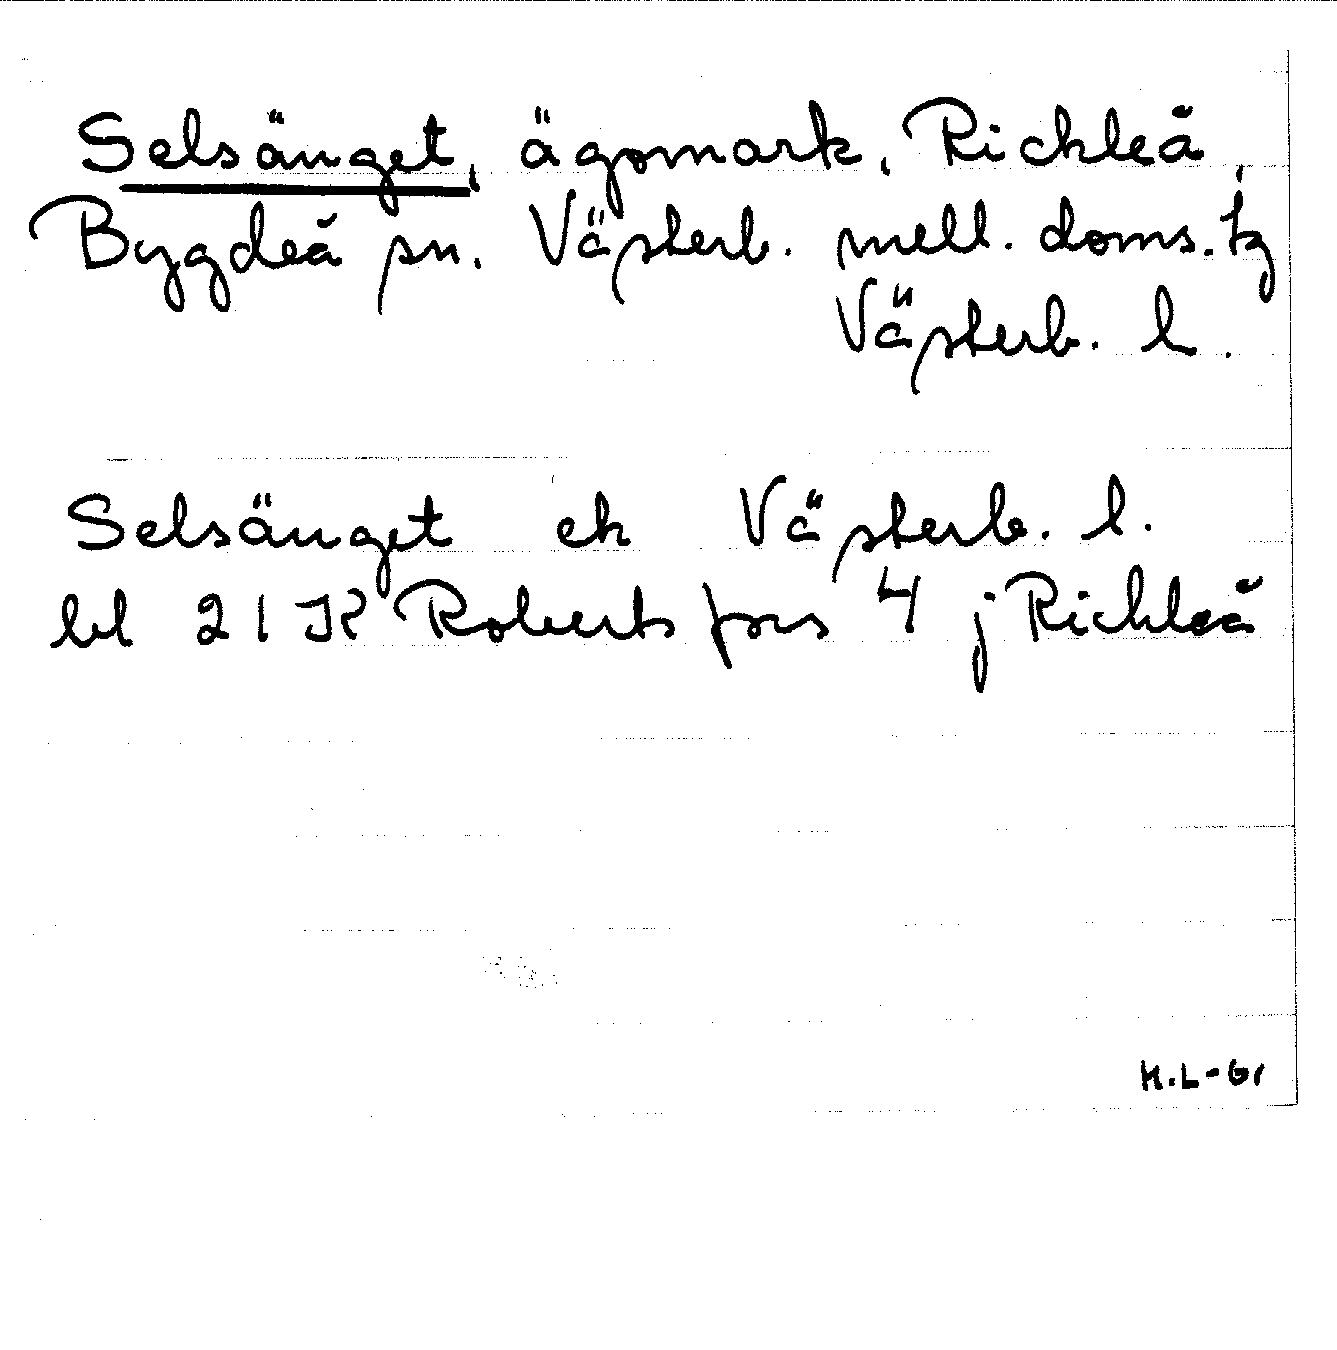 Selsänget, ägomark, Rickleå,
Bygdeå sn. Västerb. mell. doms. tg
Västerb. l.
Selsänget ek Västerb. l.
bl 21 K Robertsfors 4 j Rickleå
H.L-Gr